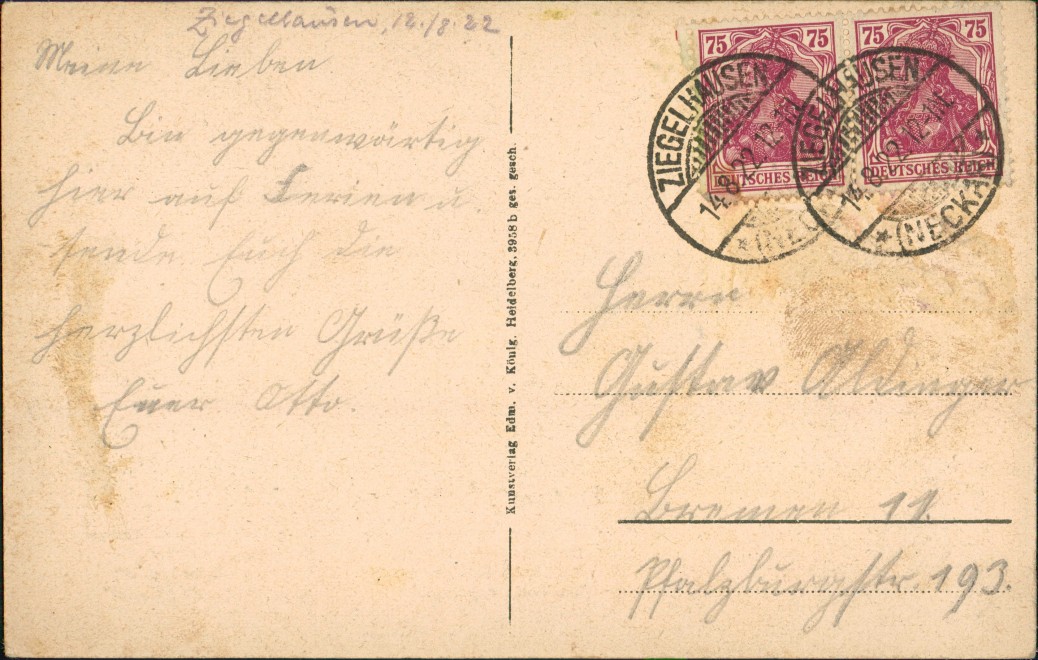 Ziegelhausen, 12./8.22
Meine Lieben
Bin gegenwärtig
hier auf Ferien u.
sende Euch die
herzlichsten Grüße
Euer Otto.
Kunstverlag Edm. v. König, Heidelberg, 3958 b ges. gesch.
75 75 75 75
DEUTSCHES REICH DEUTSCHES REICH
ZIEGELHAUSEN
14.8.22.12-1N.
* (NECKAR) *
ZIEGELHAUSEN
14.8.22.12-1N.
* (NECKAR) *
Herrn
Gustav Aldinger
Bremen 11.
Pfalzburgstr. 193.